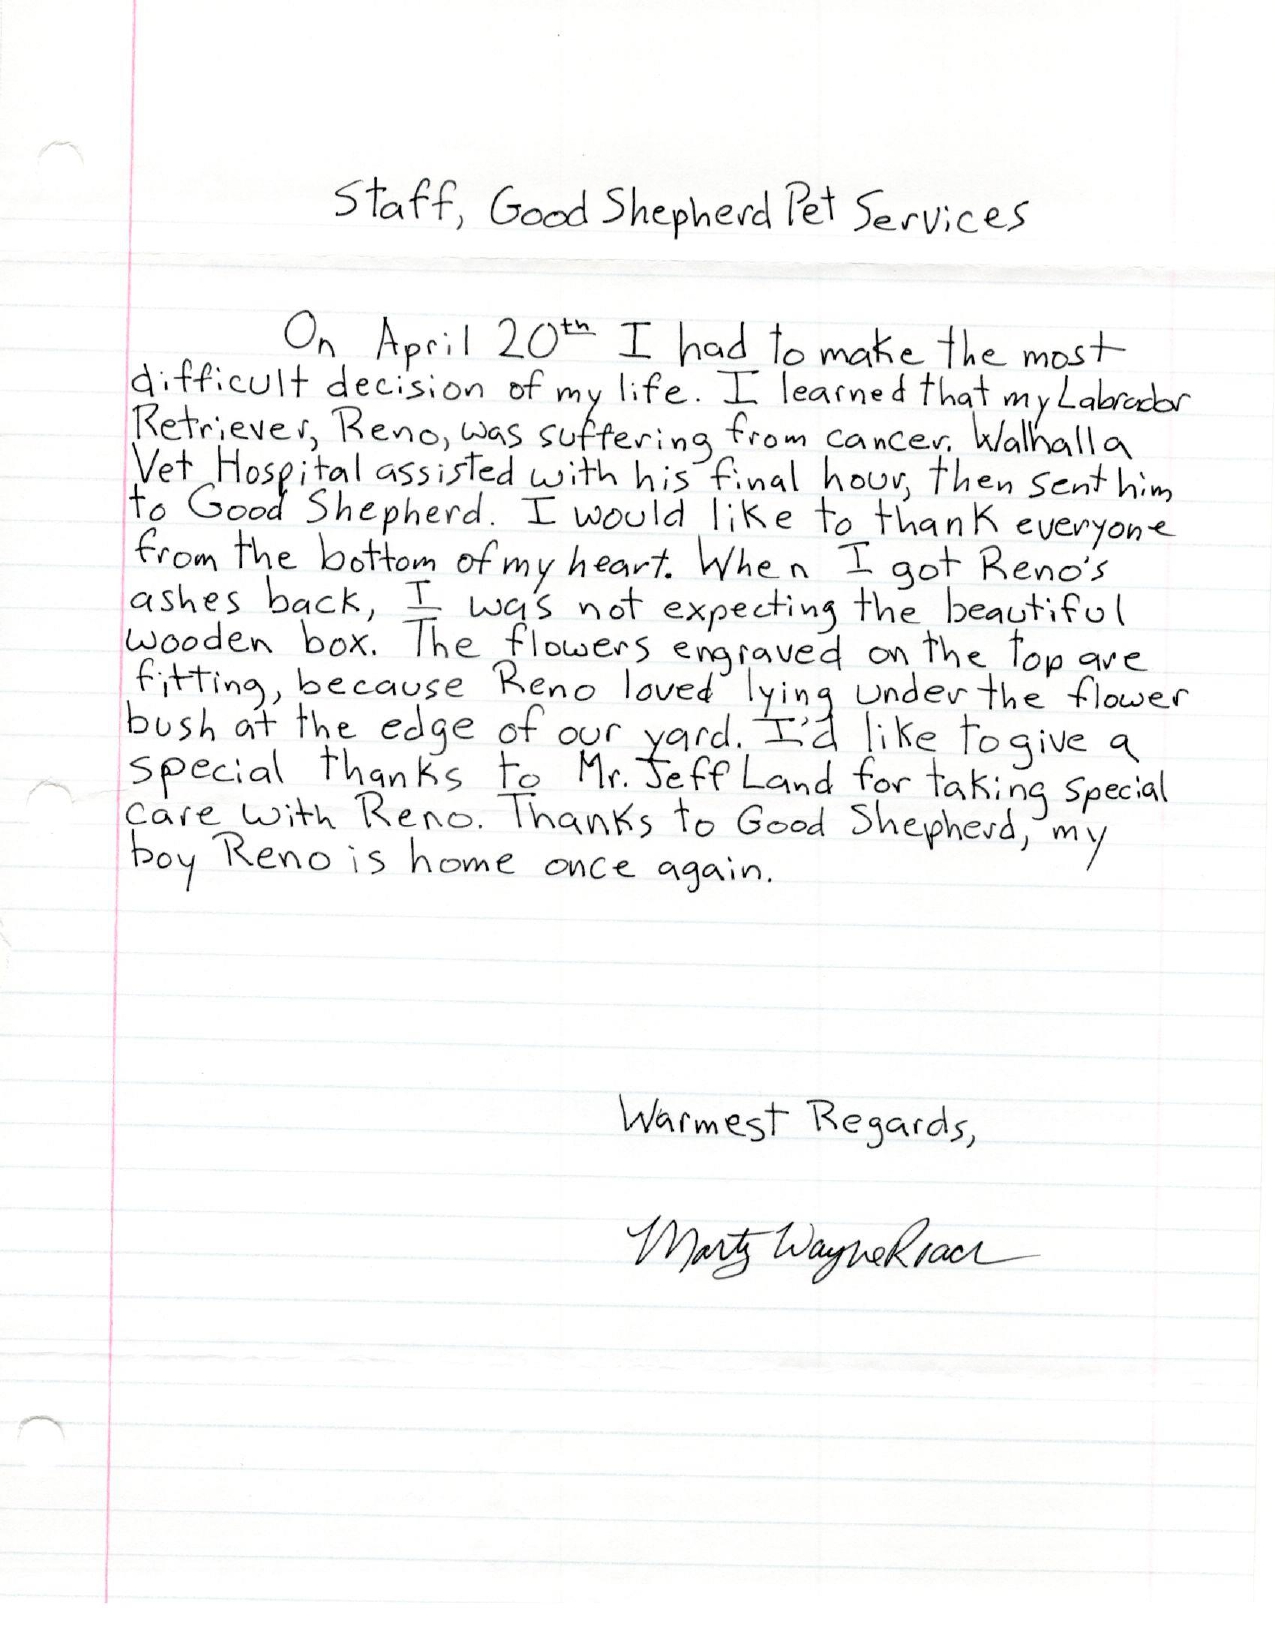 Staff, Good Shepherd Pet Services
On April 20th I had to make the most
difficult decision of my life. I learned that my Labrador
Retriever, Reno, was suffering from cancer. Walhalla
Vet Hospital assisted with his final hour, then sent him
to Good Shepherd. I would like to thank everyone
from the bottom of my heart. When I got Reno's
ashes back, I was not expecting the beautiful
wooden box. The flowers engraved on the top are
fitting, because Reno loved lying under the flower
bush at the edge of our yard. I'd like to give a
special thanks to Mr. Jeff Land for taking special
care with Reno. Thanks to Good Shepherd, my
boy Reno is home once again.
Warmest Regards,
Marty Wayne